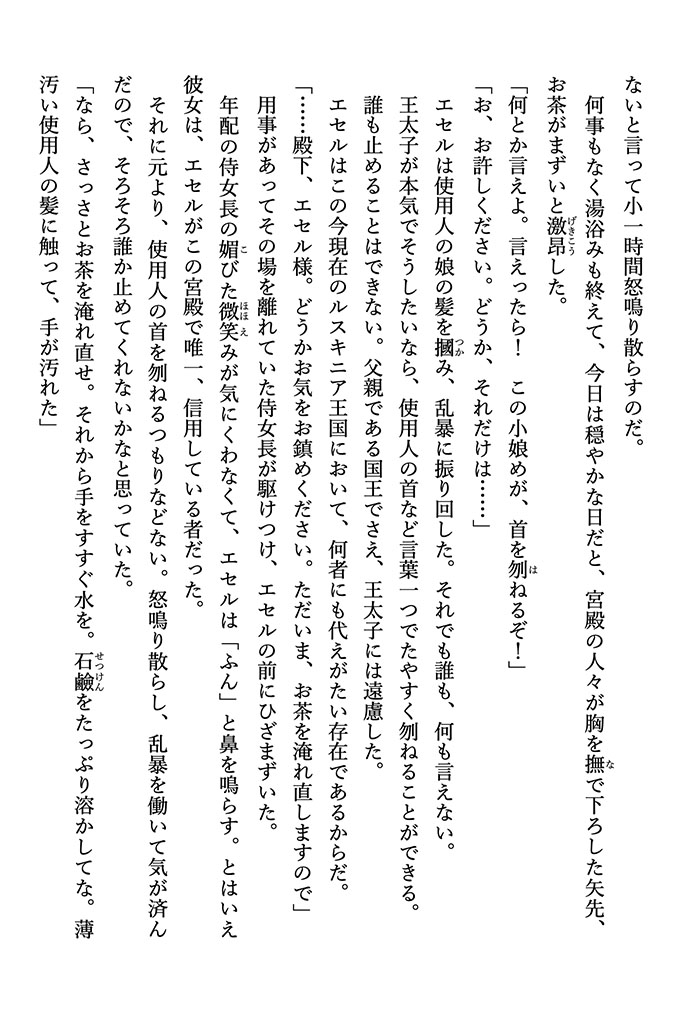 ないと言って小一時間怒鳴り散らすのだ。
　何事もなく湯浴みも終えて、今日は穏やかな日だと、宮殿の人々が胸を撫で下ろした矢先、
お茶がまずいと激昂した。
「何とか言えよ。言えったら！　この小娘めが、首を刎ねるぞ！」
「お、お許しください。どうか、それだけは……」
　エセルは使用人の娘の髪を摑み、乱暴に振り回した。それでも誰も、何も言えない。
　王太子が本気でそうしたいなら、使用人の首など言葉一つでたやすく刎ねることができる。
誰も止めることはできない。父親である国王でさえ、王太子には遠慮した。
　エセルはこの今現在のルスキニア王国において、何者にも代えがたい存在であるからだ。
「……殿下、エセル様。どうかお気をお鎮めください。ただいま、お茶を淹れ直しますので」
　用事があってその場を離れていた侍女長が駆けつけ、エセルの前にひざまずいた。
　年配の侍女長の媚びた微笑みが気にくわなくて、エセルは「ふん」と鼻を鳴らす。とはいえ
彼女は、エセルがこの宮殿で唯一、信用している者だった。
　それに元より、使用人の首を刎ねるつもりなどない。怒鳴り散らし、乱暴を働いて気が済ん
だので、そろそろ誰か止めてくれないかなと思っていた。
「なら、さっさとお茶を淹れ直せ。それから手をすすぐ水を。石鹼をたっぷり溶かしてな。薄
汚い使用人の髪に触って、手が汚れた」